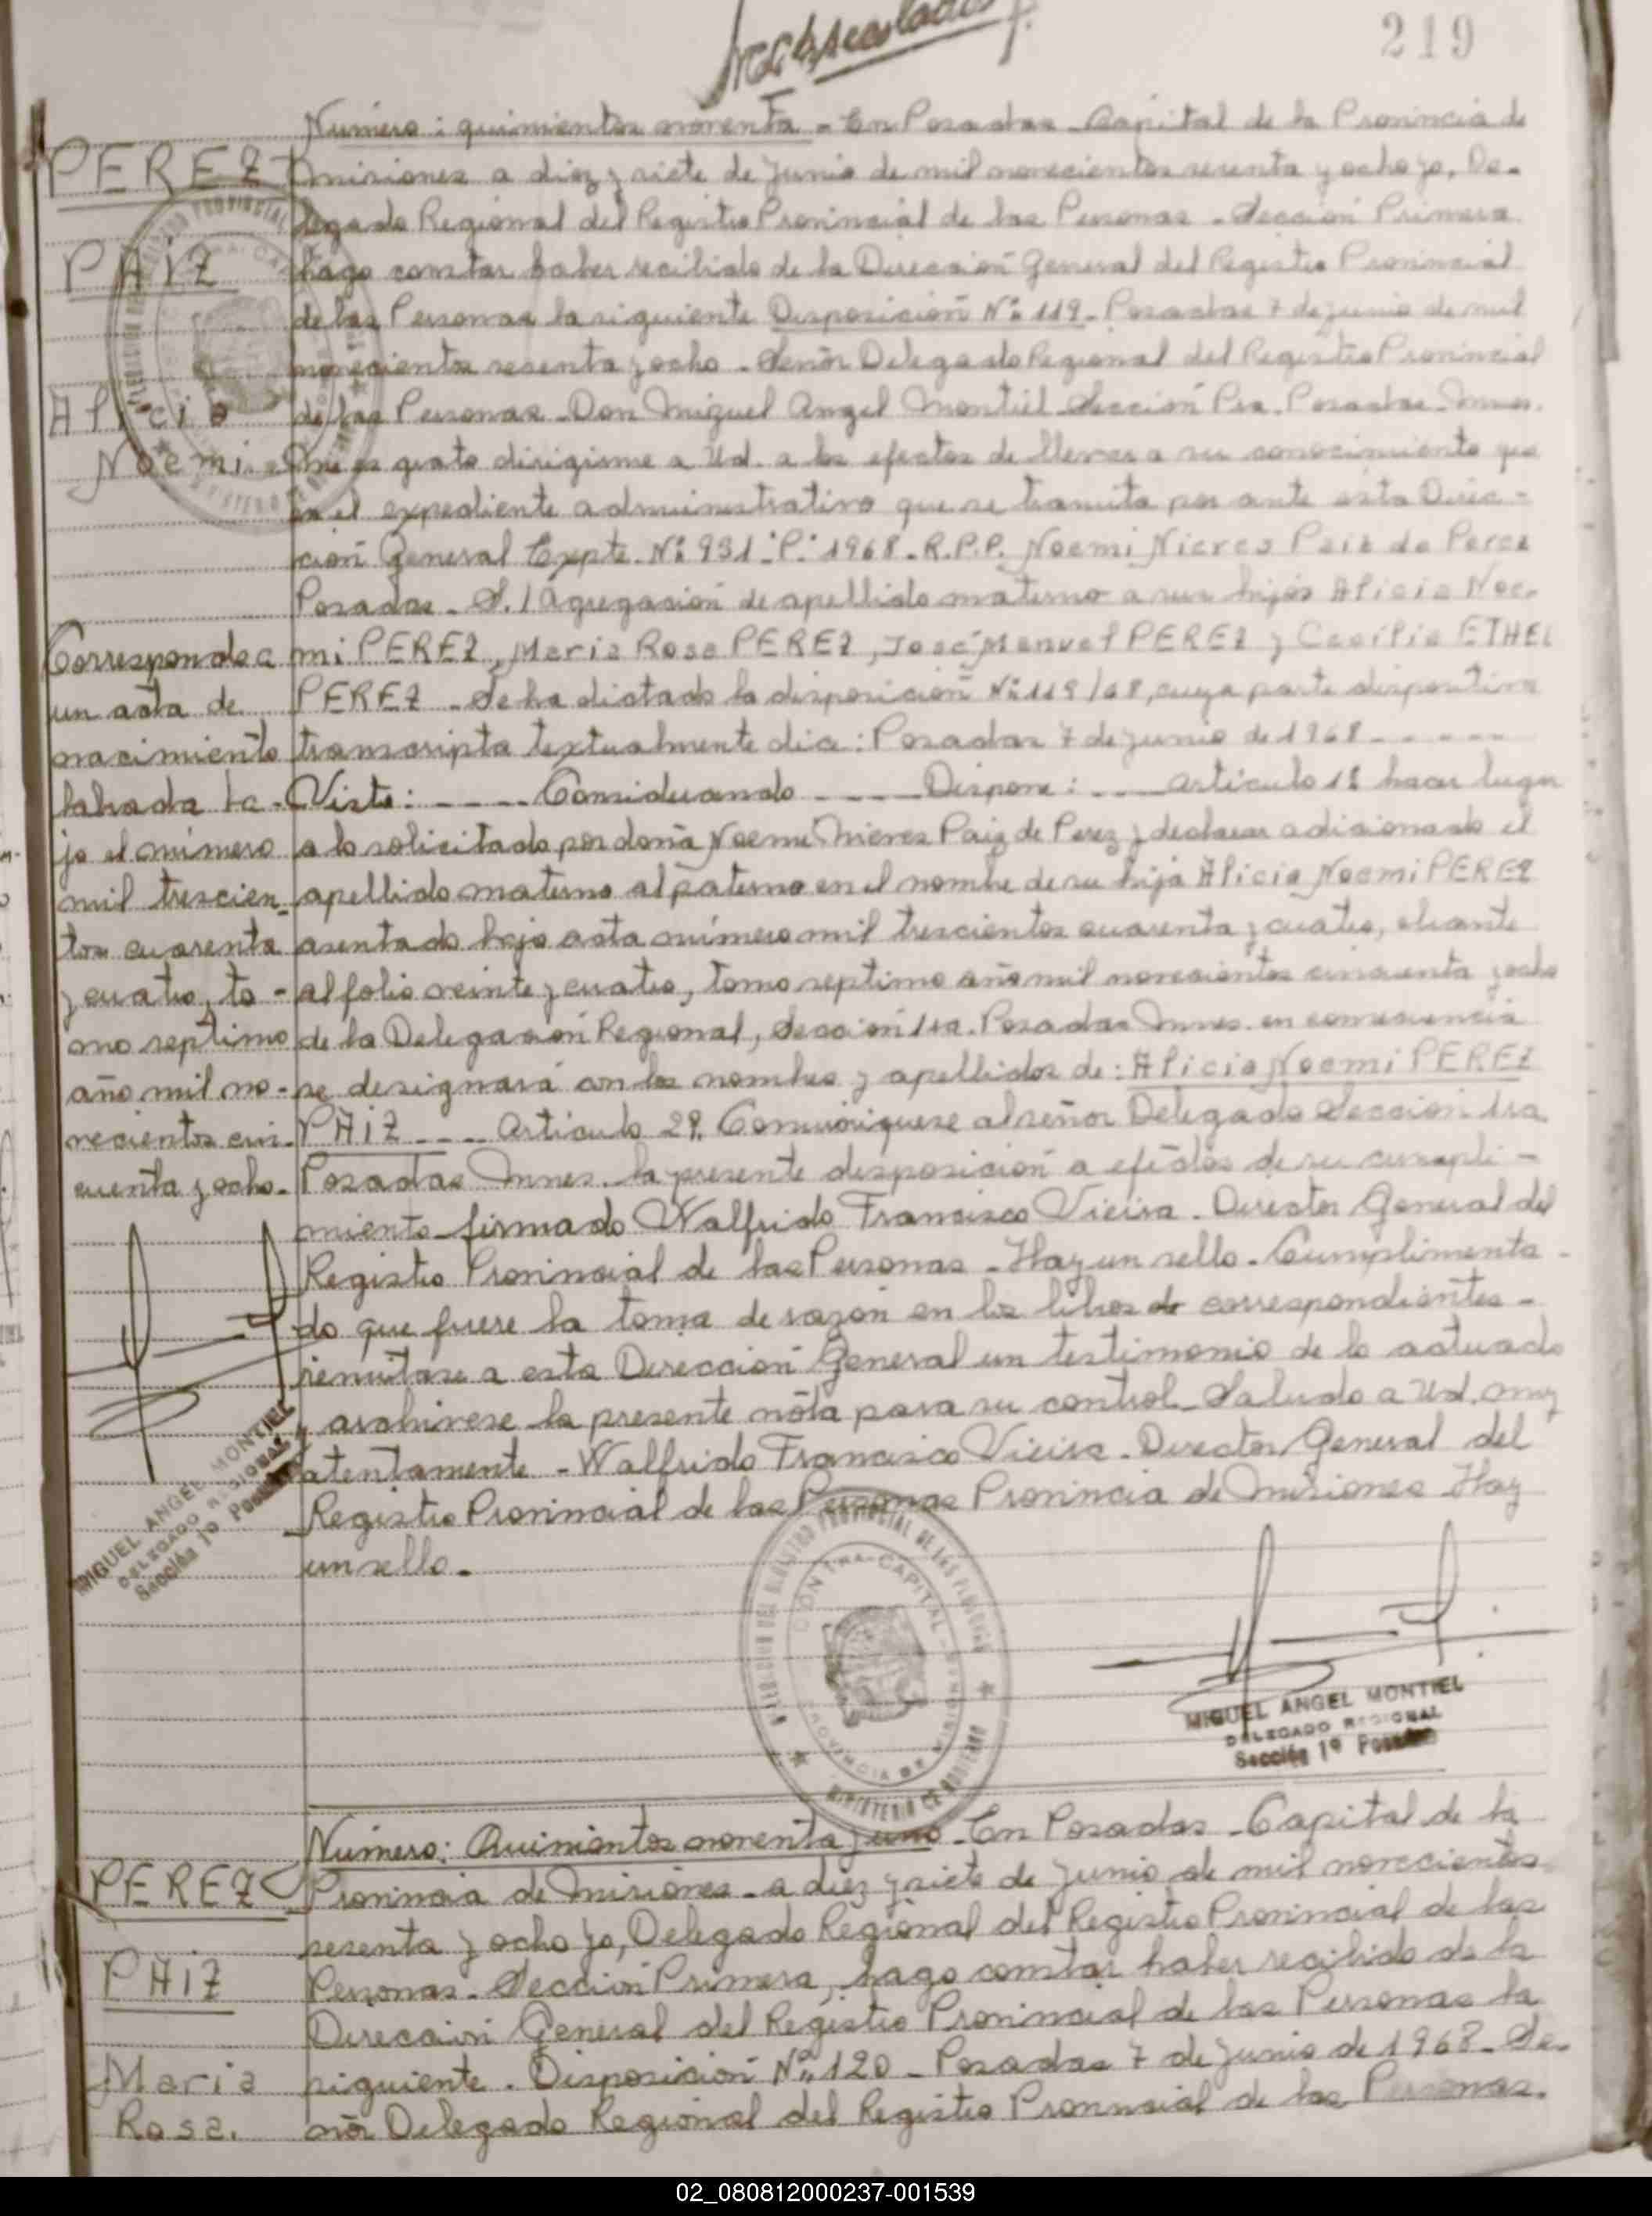 219
Número: quinientos noventa - En Posadas - Capital de la Provincia de
PEREZ
misiones a diez y siete de junio de mil novecientos sesenta y ocho yo, De-
legado Regional del Registro Provincial de las Personas - Sección Primera
PAIZ
hago constar haber recibido de la Dirección General del Registro Provincial
de las Personas la siguiente Disposición Nº 119 - Posadas 7 de junio de mil
novecientos sesenta y ocho - Señor Delegado Regional del Registro Provincial
Alicia
de las Personas - Don Miguel Angel Montiel Sección Pra. Posadas - Mnes.
Noemi
me es grato dirigirme a Ud. a los efectos de llevar a su conocimiento que
en el expediente administrativo que se tramita por ante esta Direc-
ción General Expte. Nº 931 "P" 1968 - R.P.P. Noemi Nieres Paiz de Perez
Posadas - S./ Agregación de apellido materno a sus hijos Alicia Noe-
Corresponde a
mi PEREZ, Maria Rosa PEREZ, José Manuel PEREZ y Cecilia ETHEL
un acta de
PEREZ - Se ha dictado la disposición Nº 119/68, cuya parte dispositiva
nacimiento
transcripta textualmente dice: Posadas 7 de junio de 1968 - - - - -
labrada ba-
Visto: - - - - Considerando - - - - Dispone: - - - Artículo 1º hacer lugar
jo el número
a lo solicitado por doña Noemi Nieres Paiz de Perez y declarar adicionado el
mil trescien-
apellido materno al paterno en el nombre de su hija Alicia Noemi PEREZ
tos cuarenta
asentado bajo acta número mil trescientos cuarenta y cuatro, obrante
y cuatro, to-
al folio veinte y cuatro, tomo septimo año mil novecientos cincuenta y ocho
mo septimo
de la Delegación Regional, Sección 1ra. Posadas Mnes. en consecuencia
año mil no-
se designará con los nombres y apellidos de: Alicia Noemi PEREZ
vecientos cin-
PAIZ - - - - Artículo 2º. Comuníquese al señor Delegado Sección 1ra
cuenta y ocho.
Posadas Mnes. la presente disposición a efectos de su cumpli-
miento - firmado Walfrido Francisco Vieira - Director General del
Registro Provincial de las Personas - Hay un sello - Cumplimenta-
do que fuere la toma de razón en los libros de correspondientes -
remítase a esta Dirección General un testimonio de lo actuado
y archivese la presente nóta para su control - Saludo a Ud. muy
atentamente - Walfrido Francisco Vieira - Director General del
Registro Provincial de las Personas Provincia de Misiones - Hay
un sello -
MIGUEL ANGEL MONTIEL
DELEGADO REGIONAL
Sección 1º Posadas
CONTRA-CAPITAL
PROVINCIA DE MISIONES
MINISTERIO DE GOBIERNO
MIGUEL ANGEL MONTIEL
DELEGADO REGIONAL
Sección 1º Posadas
Número: Quinientos noventa y uno - En Posadas - Capital de la
PEREZ
Provincia de Misiones - a diez y siete de junio de mil novecientos
sesenta y ocho yo, Delegado Regional del Registro Provincial de las
PAIZ
Personas - Sección Primera, hago constar haber recibido de la
Dirección General del Registro Provincial de las Personas la
Maria
siguiente - Disposición Nº 120 - Posadas 7 de junio de 1968 - Se-
Rosa.
ñor Delegado Regional del Registro Provincial de las Personas.
02_080812000237-001539